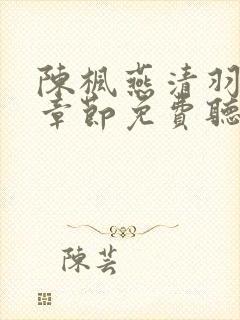 陳楓燕清羽
章節免費聽
陳芸